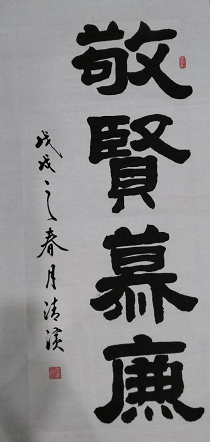 敬賢慕廉
戊戌之春月清溪